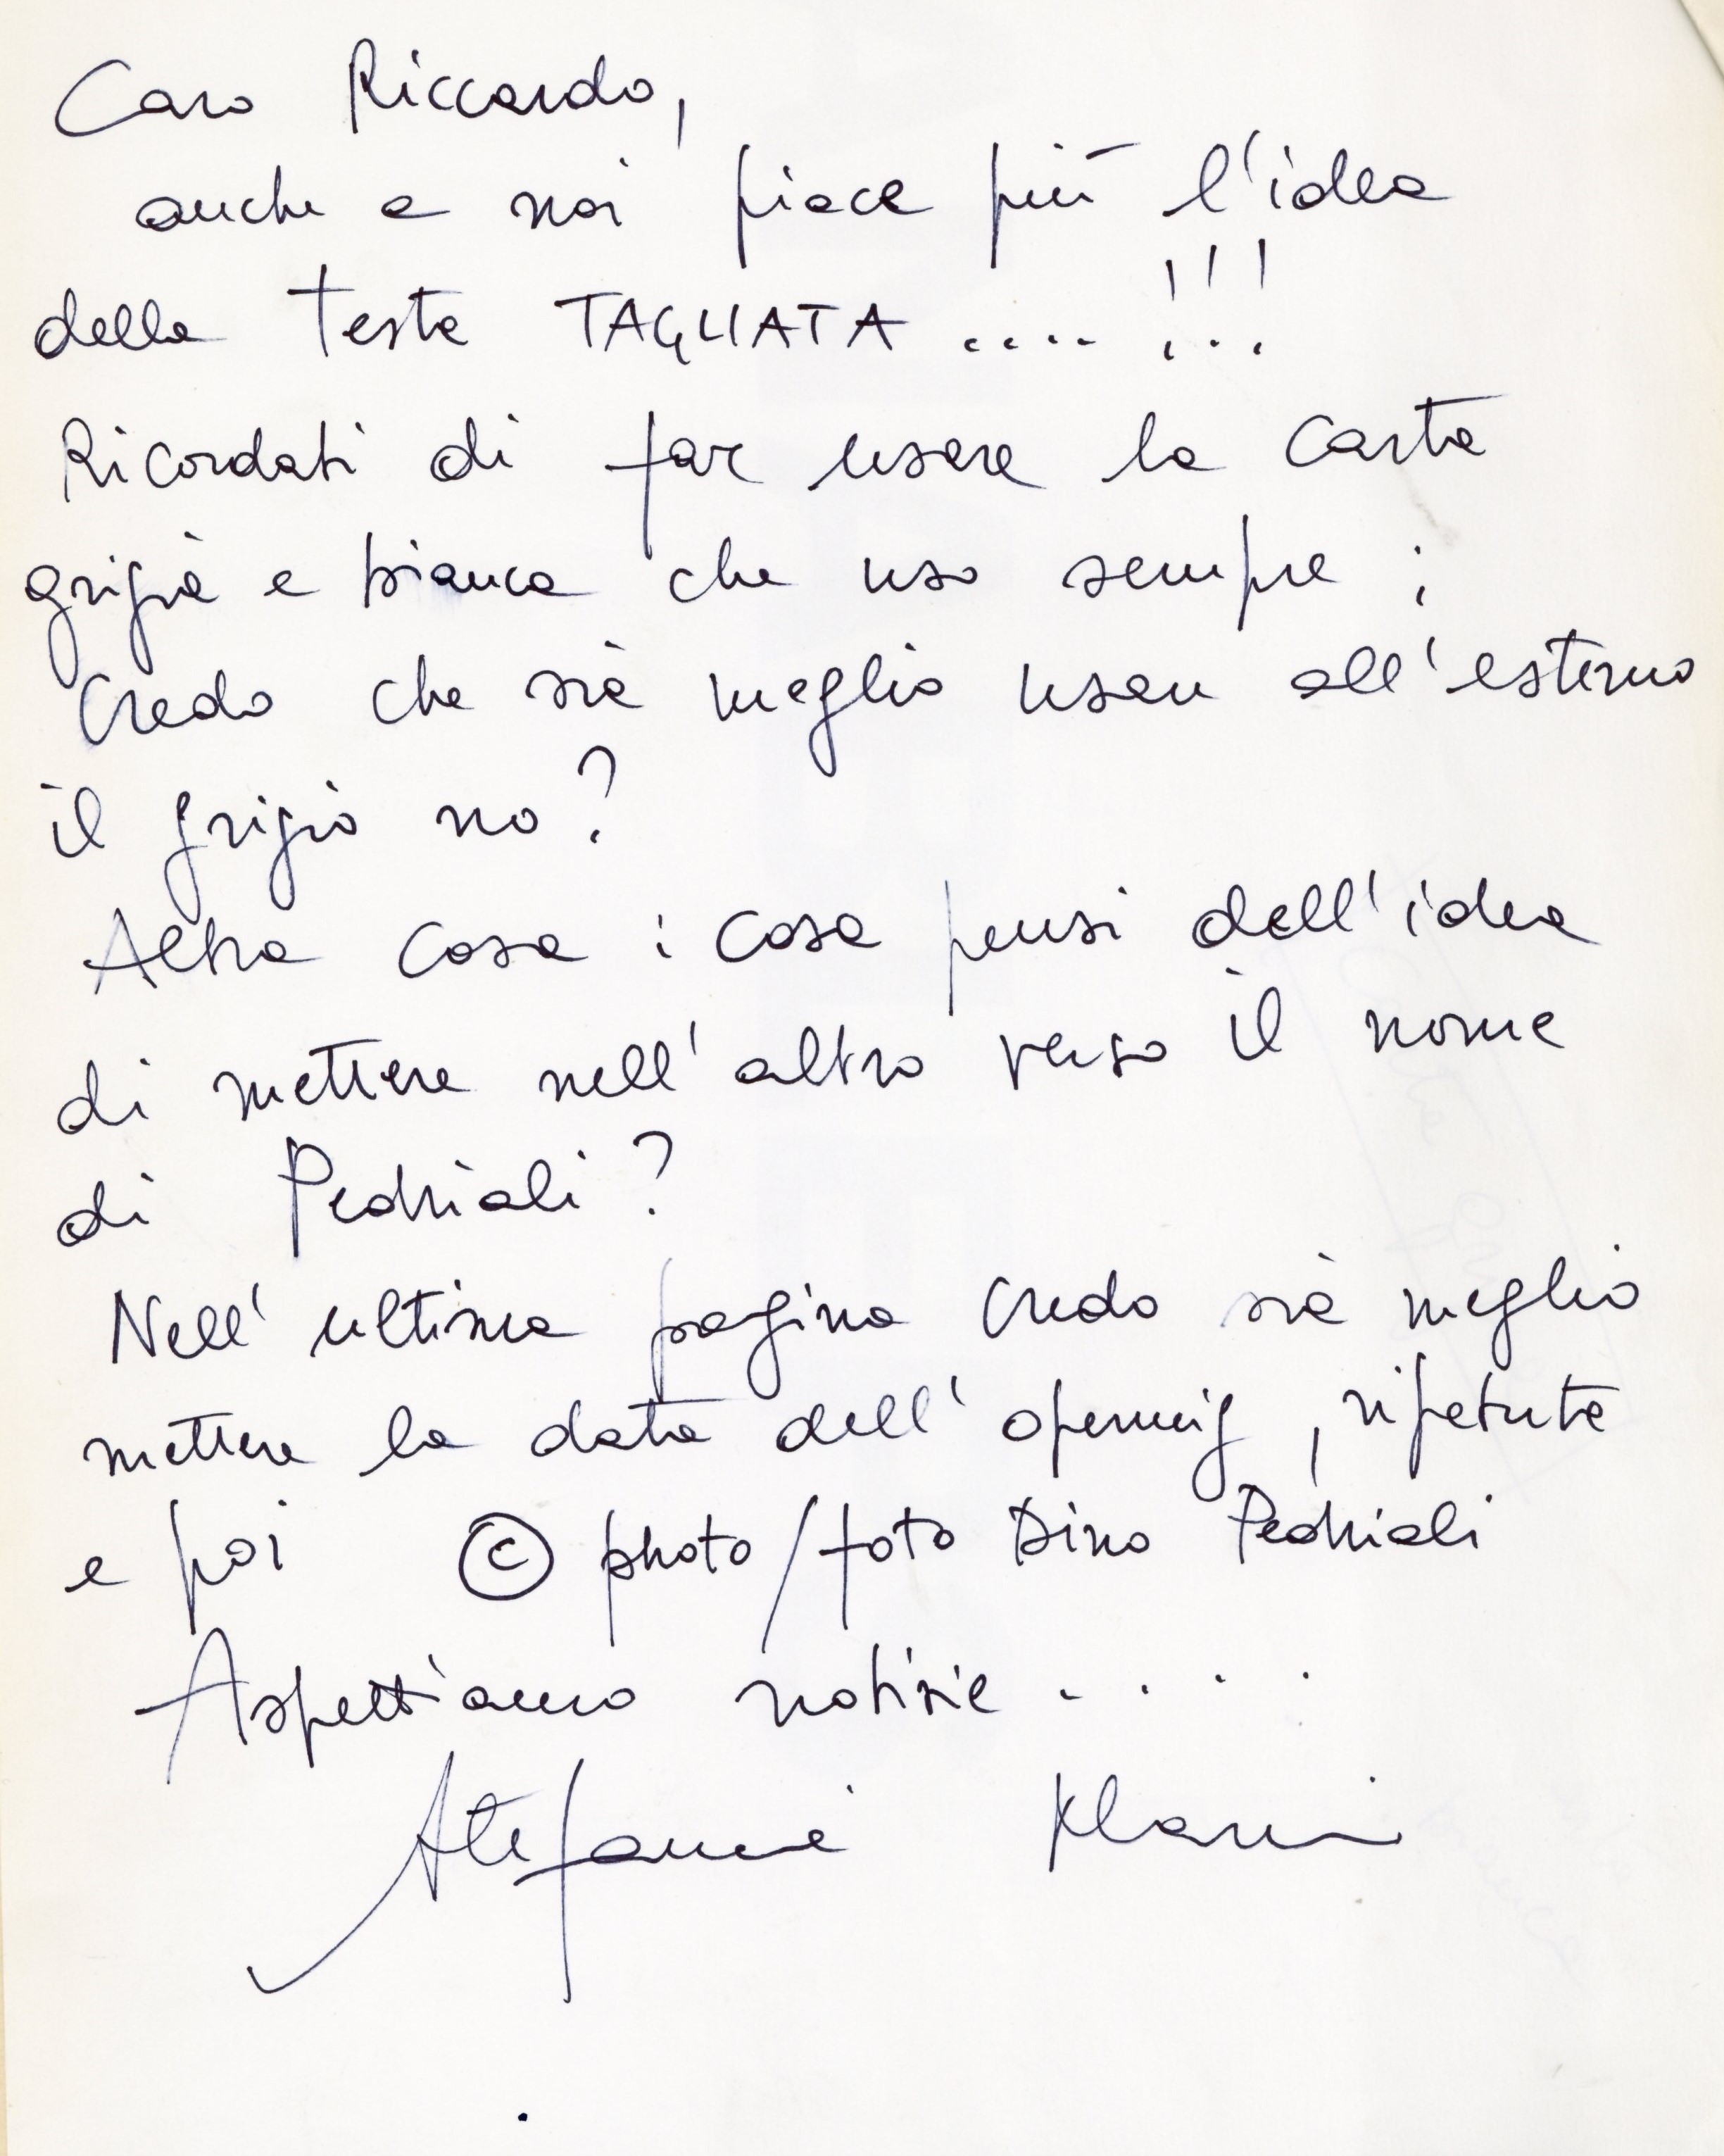 Caro Riccardo,
anche a noi piace più l'idea
della testa TAGLIATA .... !!!
Ricordati di far usare la carta
grigia e bianca che uso sempre ;
Credo che sia meglio usare all'esterno
il grigio no?
Altra cosa : cosa pensi dell'idea
di mettere nell'altro verso il nome
di Pedriali?
Nell'ultima pagina credo sia meglio
mettere la data dell'opening, ripetuta
e poi © photo/foto Dino Pedriali
Aspettiamo notizie ....
Stefania